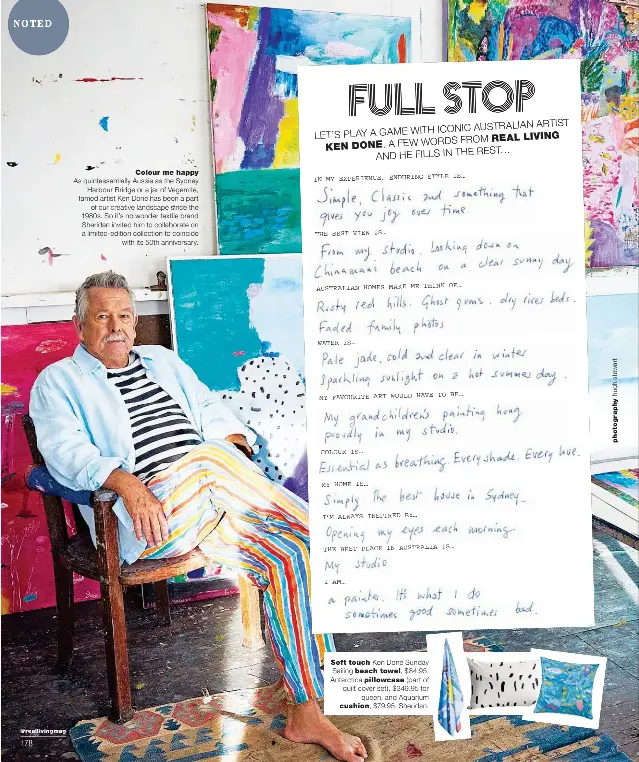 NOTED
FULL STOP
LET'S PLAY A GAME WITH ICONIC AUSTRALIAN ARTIST
KEN DONE. A FEW WORDS FROM REAL LIVING
AND HE FILLS IN THE REST...
Colour me happy
As quintessentially Aussie as the Sydney
Harbour Bridge or a jar of Vegemite,
famed artist Ken Done has been a part
of our creative landscape since the
1980s. So it's no wonder textile brand
Sheridan invited him to collaborate on
a limited-edition collection to coincide
with its 50th anniversary.
IN MY EXPERIENCE, ENDURING STYLE IS…
Simple, Classic and something that
gives you joy over time.
THE BEST VIEW IS…
From my studio. Looking down on
Chinamans beach on a clear sunny day.
AUSTRALIAN HOMES MAKE ME THINK OF…
Rusty red hills. Ghost gums. dry river beds.
Faded family photos
WATER IS…
Pale jade, cold and clear in winter
Sparkling sunlight on a hot summers day.
MY FAVOURITE ART WOULD HAVE TO BE…
My grandchildren's painting hung
proudly in my studio.
COLOUR IS…
Essential as breathing. Every shade. Every hue.
MY HOME IS…
Simply the best house in Sydney.
I'M ALWAYS INSPIRED BY…
Opening my eyes each morning
THE BEST PLACE IN AUSTRALIA IS…
My studio
I AM…
a painter. It's what I do
sometimes good sometimes bad.
photography hugh stewart
Soft touch Ken Done Sunday
Sailing beach towel, $84.95,
Antarctica pillowcase (part of
quilt cover set), $349.95 for
queen, and Aquarium
cushion, $79.95, Sheridan.
@reallivingmag
178